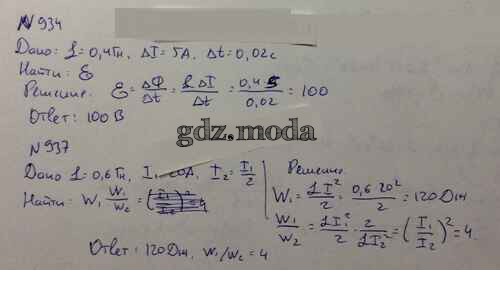 № 934
Дано: L = 0,4 Гн, ΔI = 5А, Δt = 0,02 с
Найти: Ɛ
Решение. Ɛ = ΔФ/Δt = LΔI/Δt = 0,4·5/0,02 = 100
Ответ: 100 В
gdz.moda
№ 937
Дано L = 0,6 Гн, I₁ = 20А, I₂ = I₁/2
Найти: W₁ W₁/W₂
Решение.
W₁ = LI²/2 = 0,6·20²/2 = 120 Дж
W₁/W₂ = LI₁²/2 · 2/LI₂² = (I₁/I₂)² = 4.
Ответ: 120 Дж, W₁/W₂ = 4